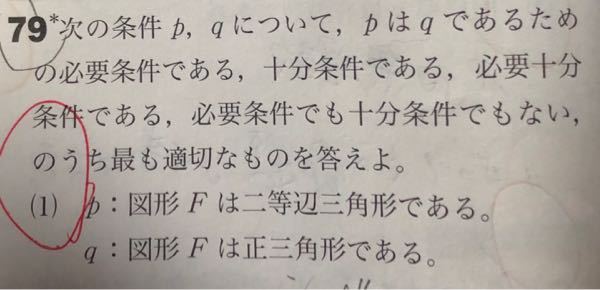 79*次の条件 p, q について，p は q であるため
の必要条件である，十分条件である，必要十分
条件である，必要条件でも十分条件でもない，
のうち最も適切なものを答えよ。
(1) p：図形 F は二等辺三角形である。
q：図形 F は正三角形である。